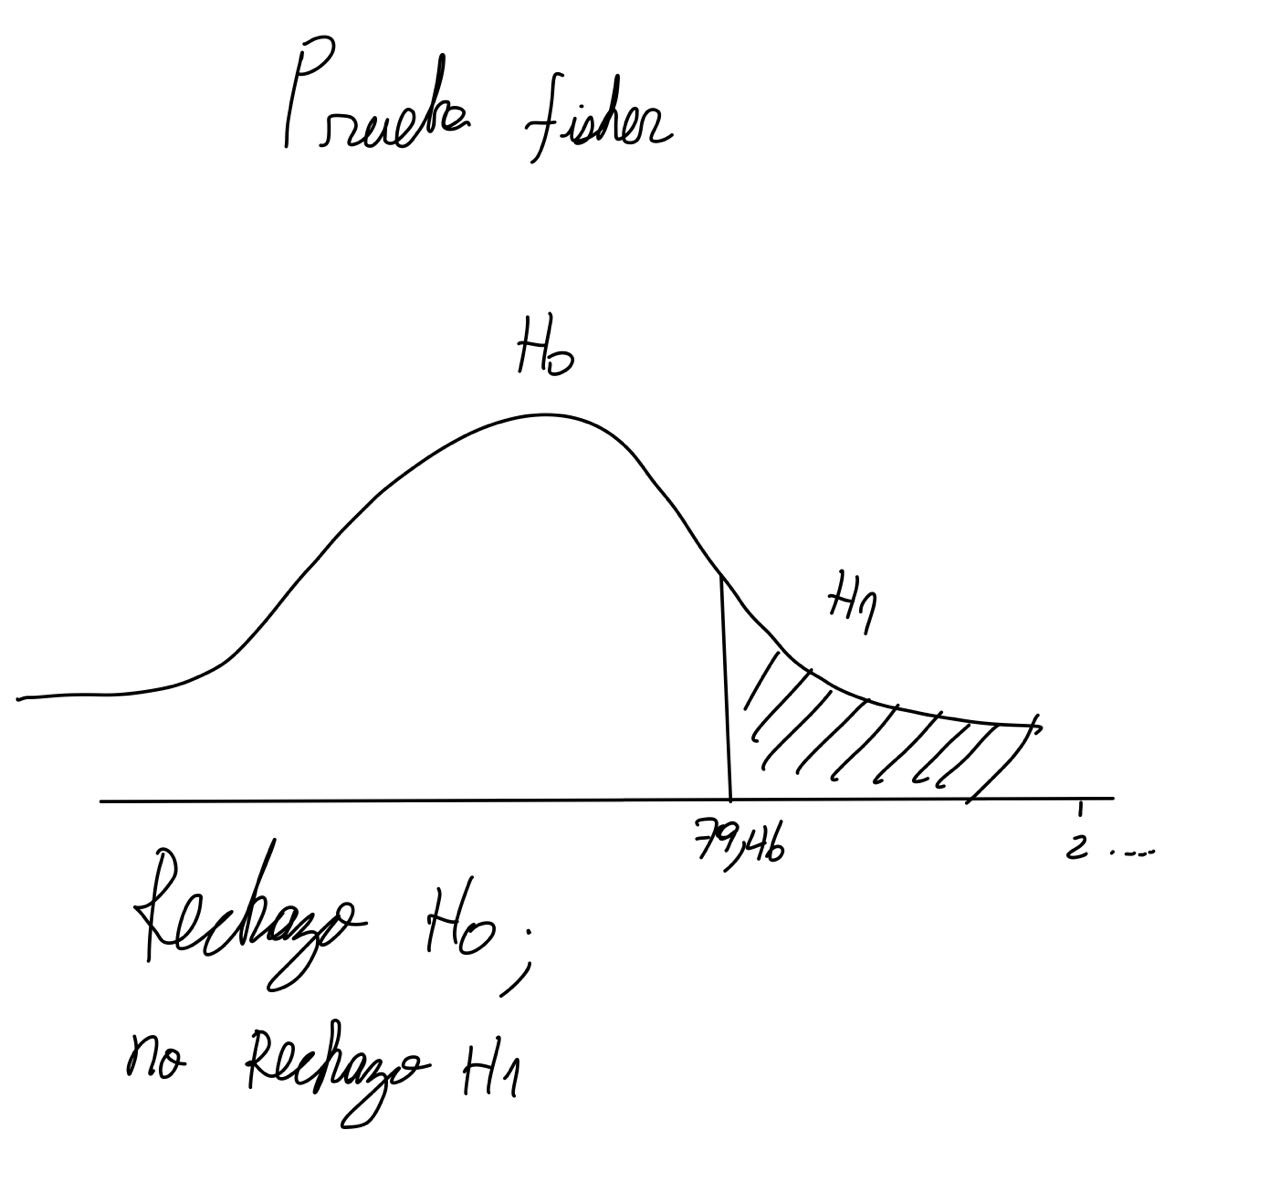 Prueba fisher
H0
H1
79,46
2 ....
Rechazo H0;
no Rechazo H1